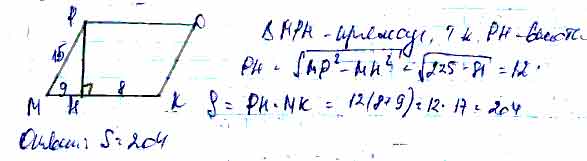 P O
15
9 8
M H K
Δ MPH - прямоуг, т.к. PH - высота
PH = √MP² - MH² = √225 - 81 = 12
S = PH · MK = 12(8+9) = 12 · 17 = 204
Ответ: S = 204